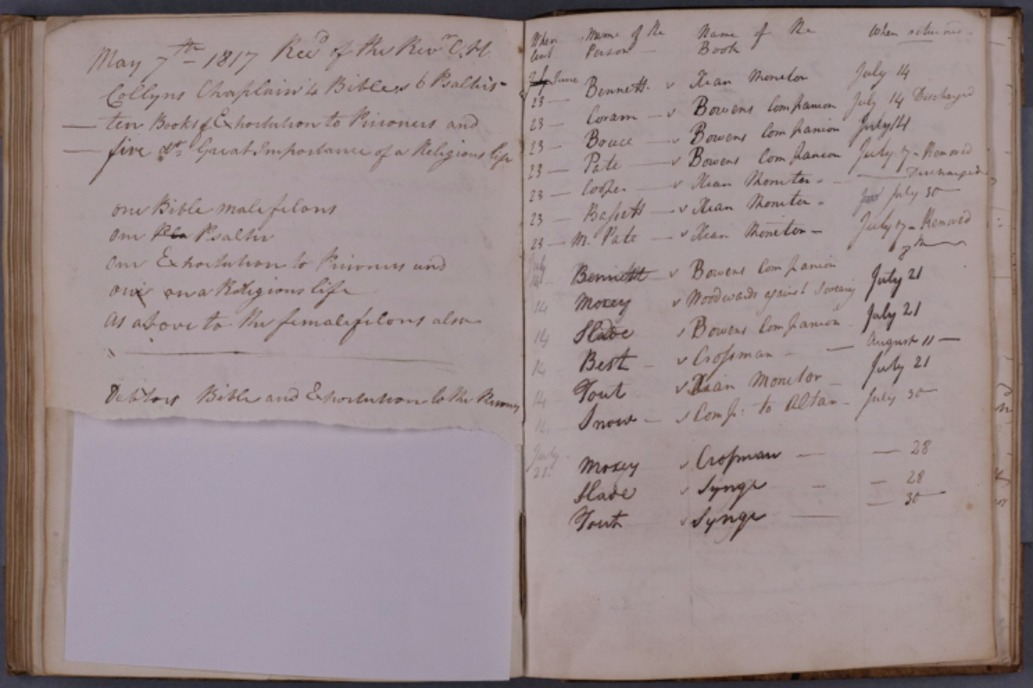 May 7th 1817 Recd of the Revd C. H
Collyns Chaplain 4 Bibles 6 Psalters
ten Books of Exhortation to Prisoners and
five do Great Importance of a Religious life
one Bible male felons
one Psalter
one Exhortation to Prisoners and
one on a Religious life
As above to the female felons also
Debtors Bible and Exhortation to the
When lent Name of the Person Name of the Book When returned
June
23 — Bennett v Xian Monitor July 14
23 — Coram — v Bowens Companion July 14 Discharged
23 — v Bowens Companion July 14
23 — Pate — v Bowens Companion July 17 — Removed
23 — Cooper — v Xian Monitor — Discharged
23 — Bassett — v Xian Monitor — July 30
23 — M. Pate — v Xian Monitor — July 17 — Removed
July
14 Bennett v Bowens Companion
14 Moxey v Woodwards against Swearing July 21
14 Slade v Bowens Companion July 21
14 Best — v Crossman — August 11 —
14 Tout v Xian Monitor July 21
14 Snow — v Comp: to Altar — July 30
July
21 Moxey v Crossman — — 28
Slade v Synge — — 28
Tout v Synge — — 30